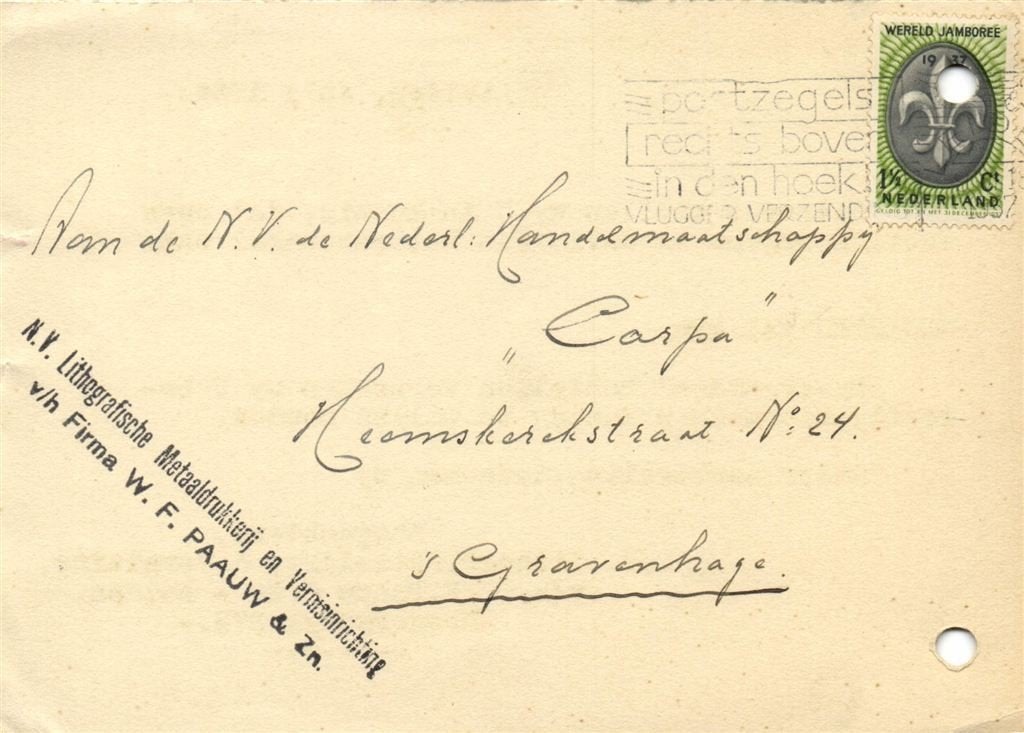 WERELD JAMBOREE
1937
1½ Ct
NEDERLAND
GELDIG TOT EN MET 31 DECEMBER
postzegels
rechts boven
in den hoek!
VLUGGER VERZEND
Aan de N.V. de Nederl: Handelmaatschappy
„Carpa”
Heemskerckstraat No: 24.
's Gravenhage.
N.V. Lithografische Metaaldrukkerij en Vernisinrichting
v/h Firma W. F. PAAUW & Zn.